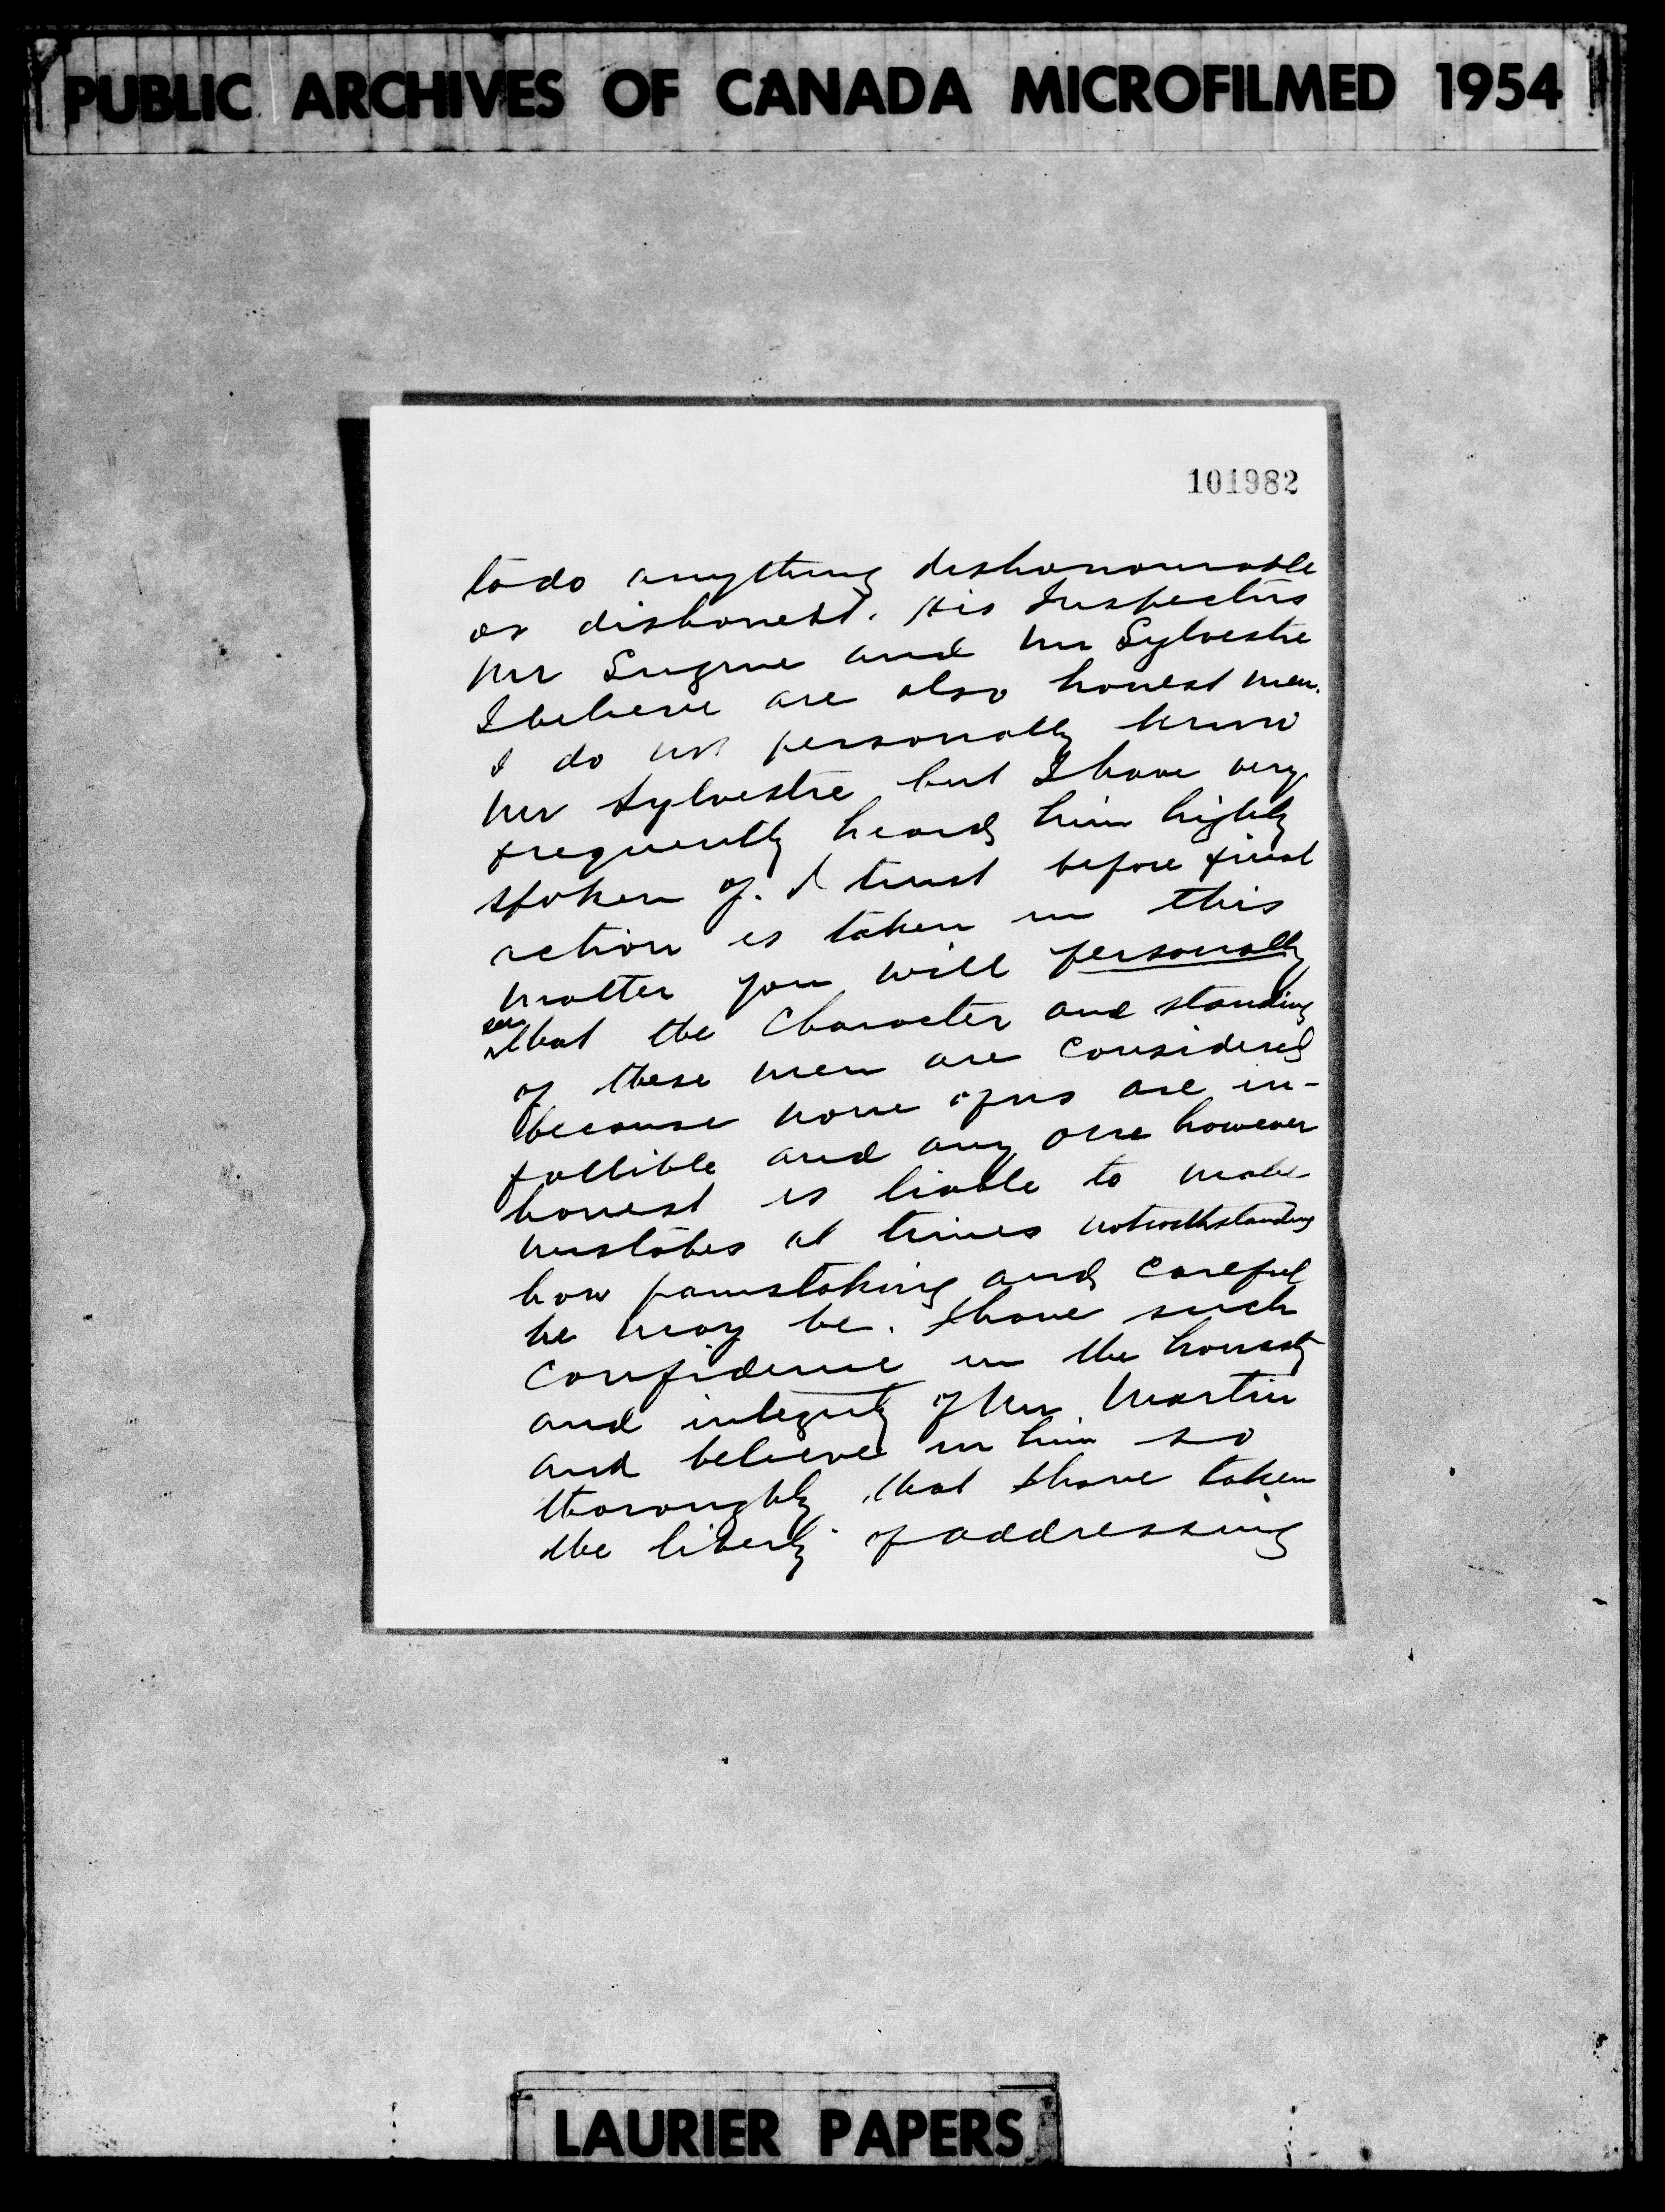 PUBLIC ARCHIVES OF CANADA MICROFILMED 1954
101982
to do anything dishonourable
or dishonest. His Inspectors
Mr and Mr Sylvestre
I believe are also honest men.
I do not personally know
Mr Sylvestre but I have very
frequently heard him highly
spoken of. I trust before final
action is taken in this
matter you will personally
see
that the Character and standing
of these men are considered
because none of us are in-
fallible and any one however
honest is liable to make
mistakes at times notwithstanding
how painstaking and careful
he may be. I have such
confidence in the honesty
and integrity of Mr. Martin
and believe in him so
thoroughly that I have taken
the liberty of addressing
LAURIER PAPERS